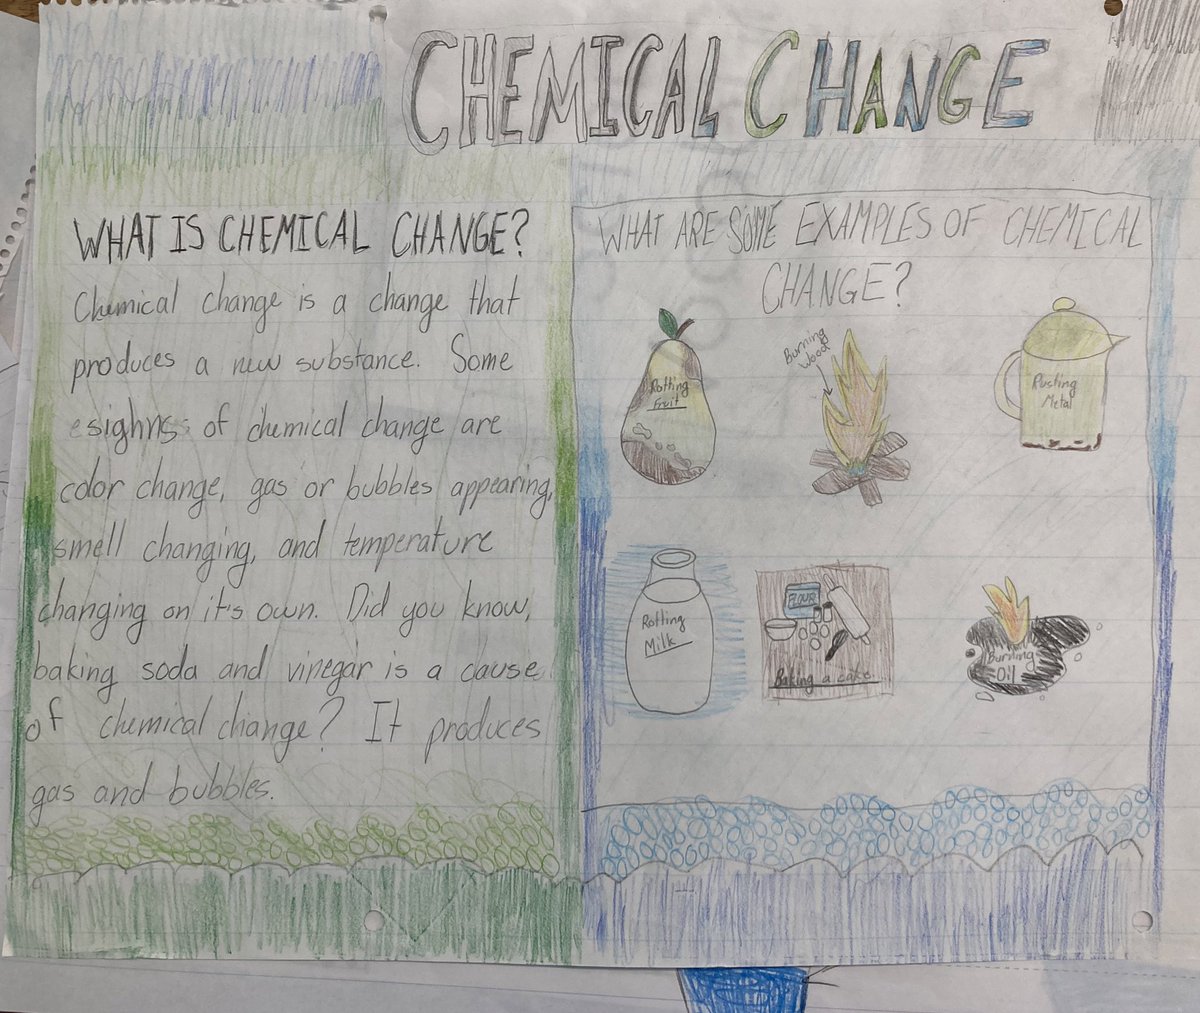 CHEMICAL CHANGE
WHAT IS CHEMICAL CHANGE?
Chemical change is a change that
produces a new substance. Some
esighns of chemical change are
color change, gas or bubbles appearing,
smell changing, and temperature
changing on it's own. Did you know,
baking soda and vinegar is a cause
of chemical change? It produces
gas and bubbles.
WHAT ARE SOME EXAMPLES OF CHEMICAL
CHANGE?
Rotting
Fruit
Burning
Wood
Rusting
Metal
Rotting
Milk
FLOUR
Baking a cake
Burning
Oil